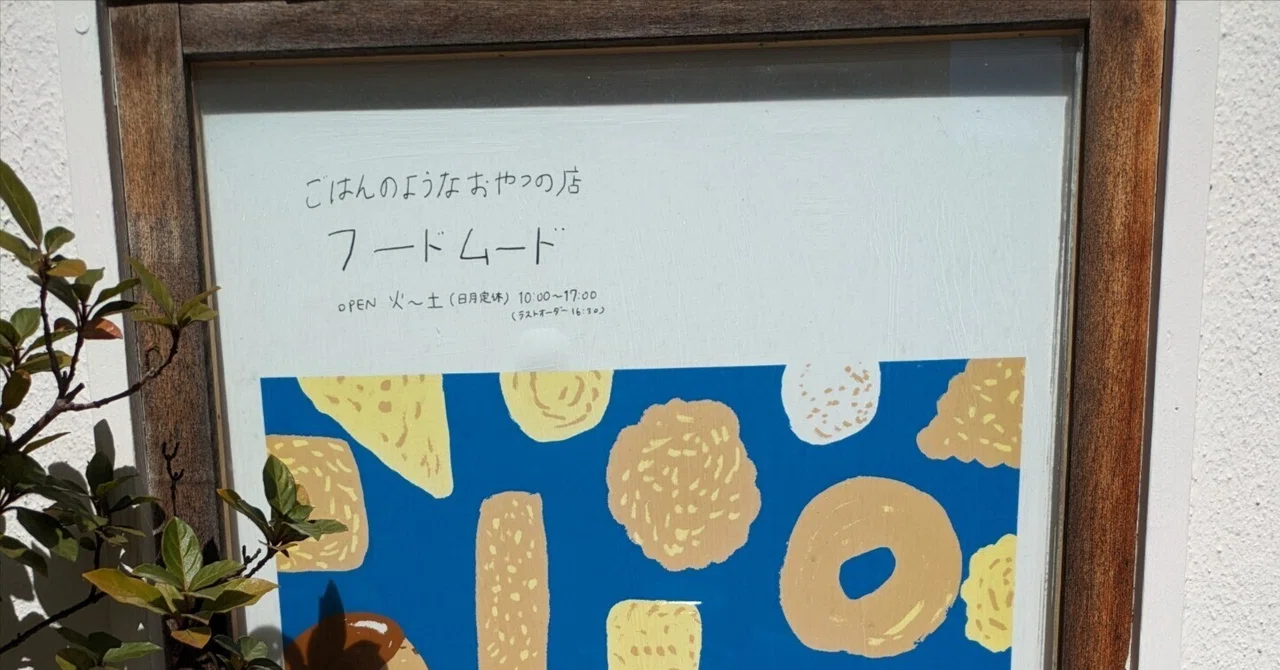 ごはんのようなおやつの店
フードムード
OPEN 火〜土 (日月定休) 10:00〜17:00
(ラストオーダー 16:30)